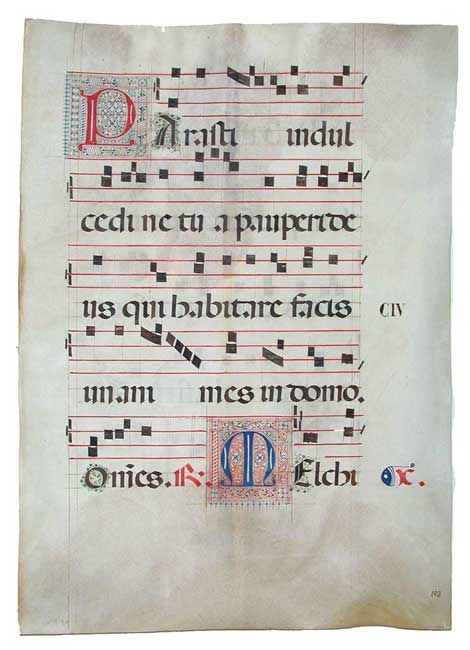 PArasti indul
cedine tua pauperi de
us qui habitare facis CIV
unani mes in domo.
Om̄es. R. MElchi